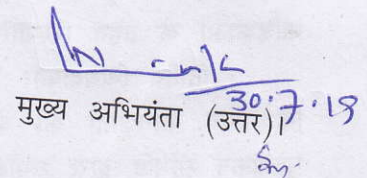 30.7.19
मुख्य अभियंता (उत्तर)।